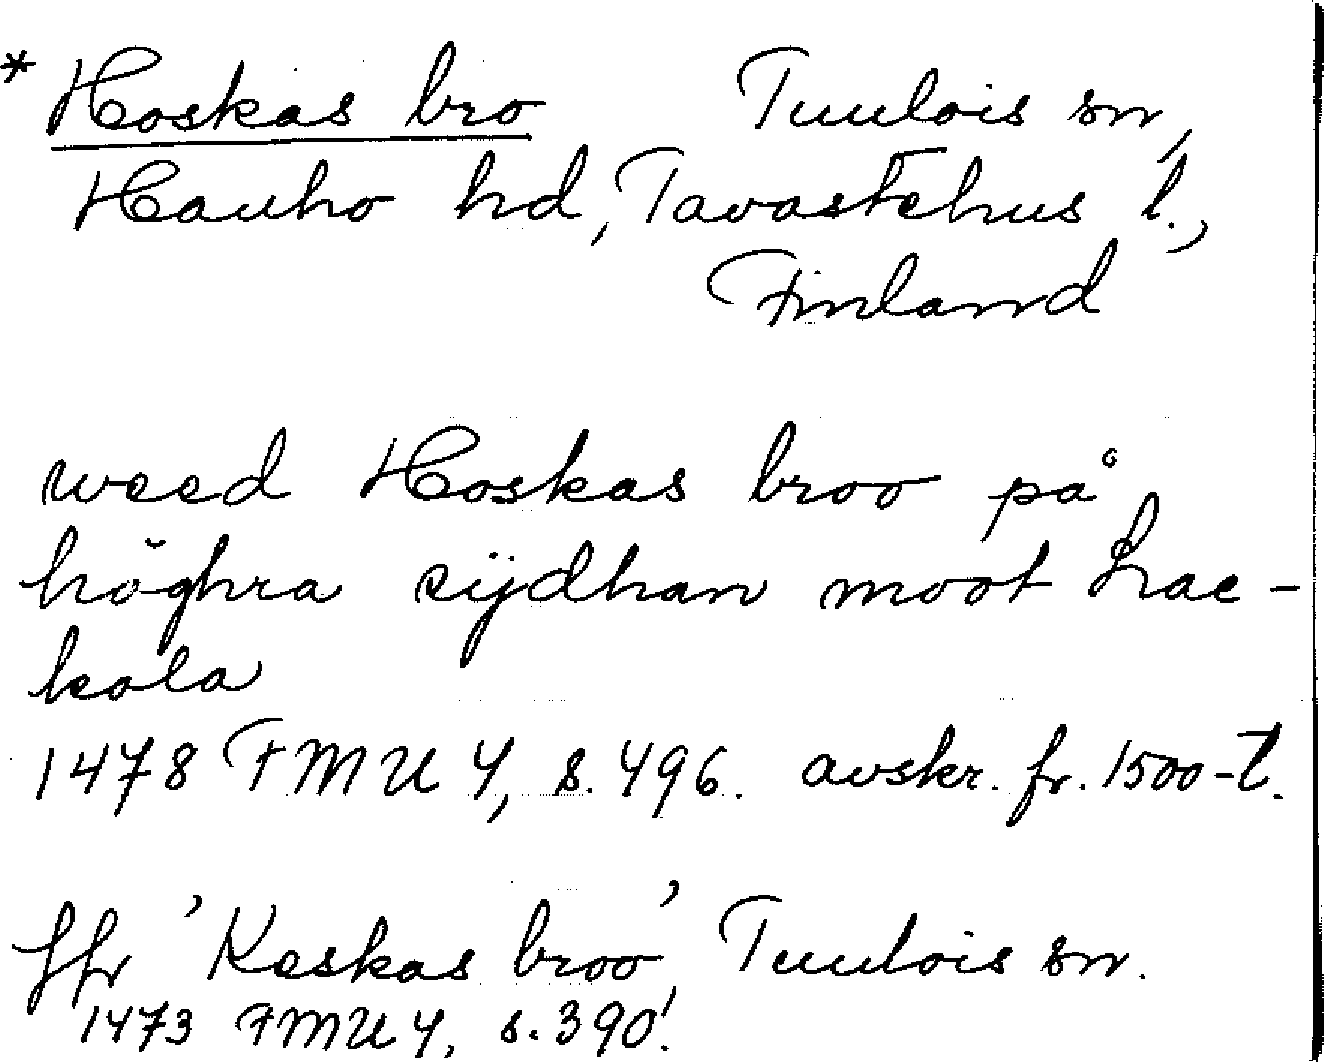 * Hoskas bro Tuulois sn,
Hauho hd, Tavastehus l.,
Finland
weed Hoskas broo på
höghra sijdhan moot Lae-
kola
1478 FMU 4, s. 496. avskr. fr. 1500-t.
Jfr 'Keskas broo' Tuulois sn.
1473 FMU 4, s. 390!